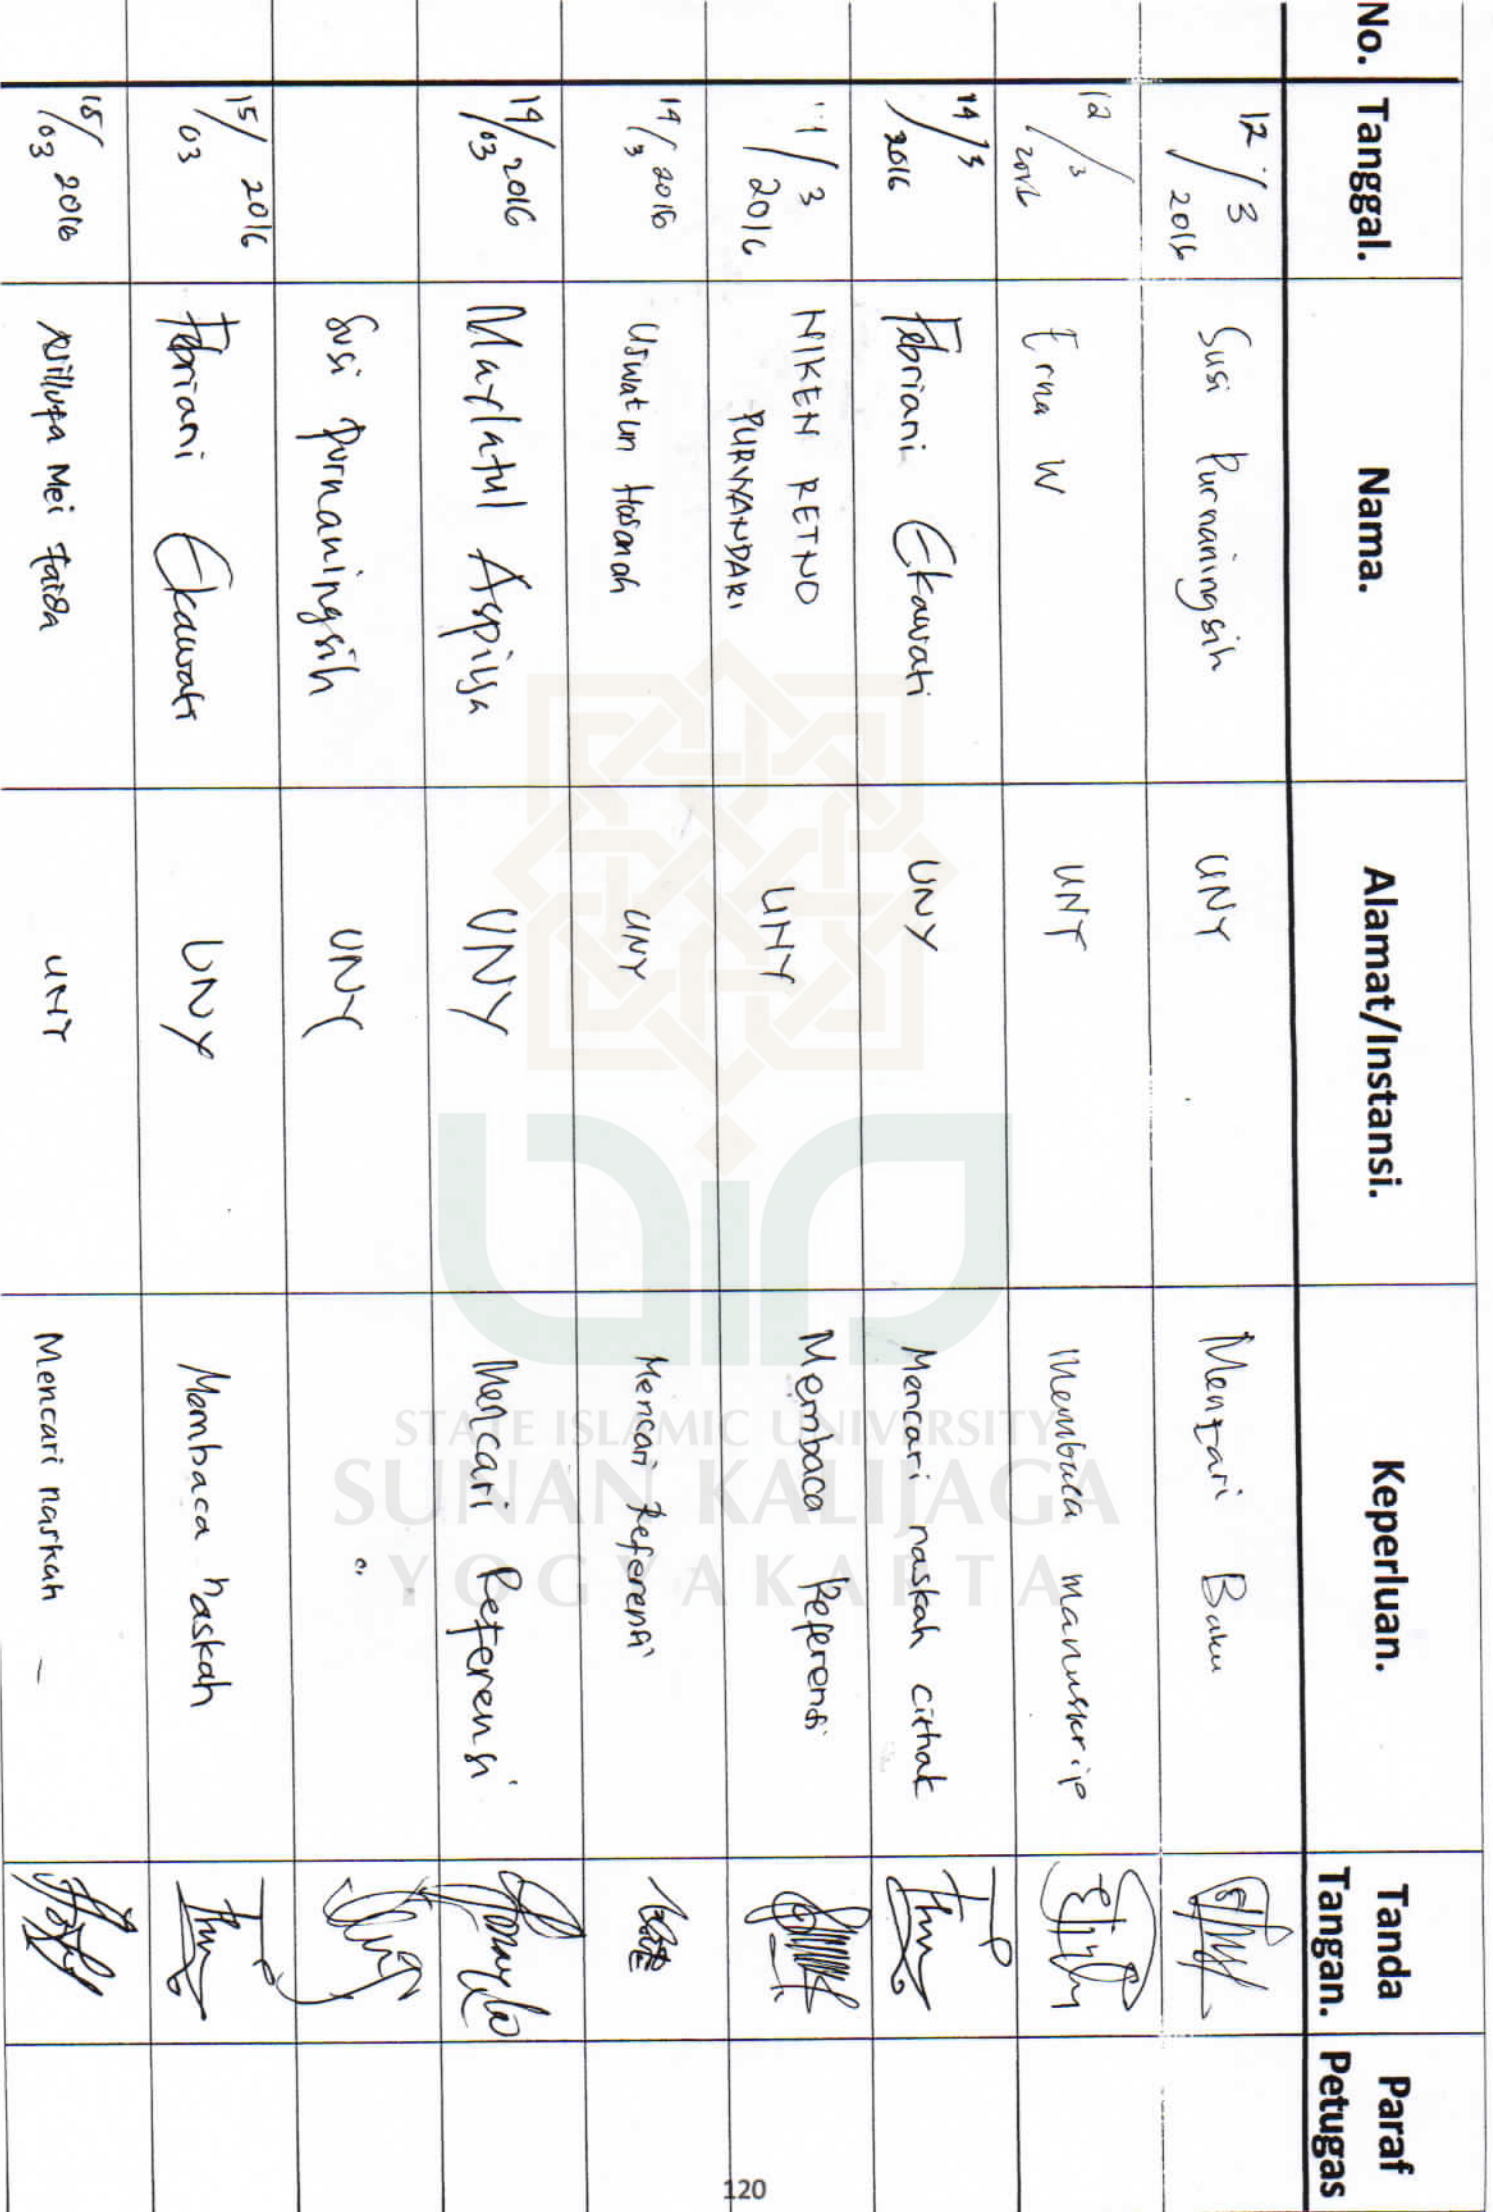 No. Tanggal. Nama. Alamat/Instansi. Keperluan. Tanda Tangan. Paraf Petugas
12/3 2016 Susi Purnaningsih UNY Mencari Buku
12/3 2016 Erna W UNY Membaca manuskrip
14/3 2016 Febriani Ekawati UNY Mencari naskah cithak
/3 2016 NIKEN RETNO PURWANDARI UNY Membaca Referensi
14/3 2016 Uswatun Hasanah UNY Mencari Referensi
14/03 2016 Maylatul Aspiya UNY Mencari Referensi
Susi Purnaningsih UNY "
15/03 2016 Febriani Ekawati UNY Membaca naskah
15/03 2016 Mei Farida UNY Mencari naskah –
STATE ISLAMIC UNIVERSITY
SUNAN KALIJAGA
YOGYAKARTA
120